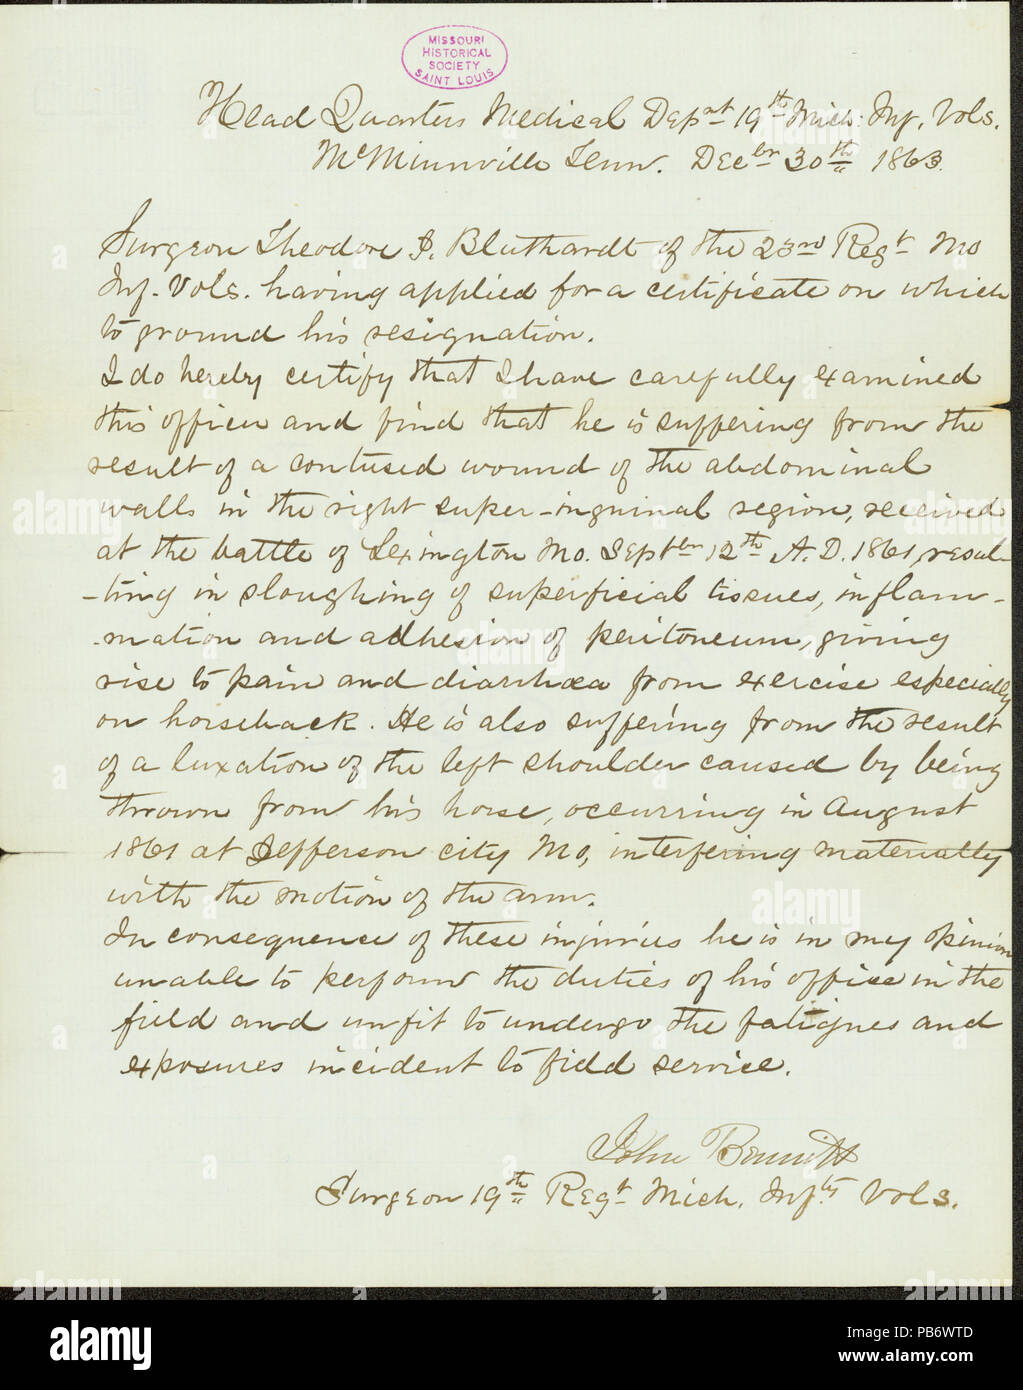 MISSOURI
HISTORICAL
SOCIETY
SAINT LOUIS
Head Quarters Medical Depmt 19th Mich: Inf, Vols.
McMinnville Tenn. Decbr 30th 1863.
Surgeon Theodore J. Bluthardt of the 23rd Regt Mo
Inf. Vols. having applied for a certificate on which
to ground his resignation.
I do hereby certify that I have carefully examined
this officer and find that he is suffering from the
result of a contused wound of the abdominal
walls in the right super-inguinal region, received
at the battle of Lexington Mo. Septbr 12th A.D. 1861, resul-
-ting in sloughing of superficial tissues, inflam-
-mation and adhesion of peritoneum, giving
rise to pain and diarrhœa from exercise especially
on horseback. He is also suffering from the result
of a luxation of the left shoulder caused by being
thrown from his horse, occurring in August
1861 at Jefferson city Mo, interfering materially
with the motion of the arm.
In consequence of these injuries he is in my opinion
unable to perform the duties of his office in the
field and unfit to undergo the fatigues and
exposures incident to field service.
John Bennitt
Surgeon 19th Regt Mich. Infty Vols.
alamy
Image ID: PB6WTD
www.alamy.com